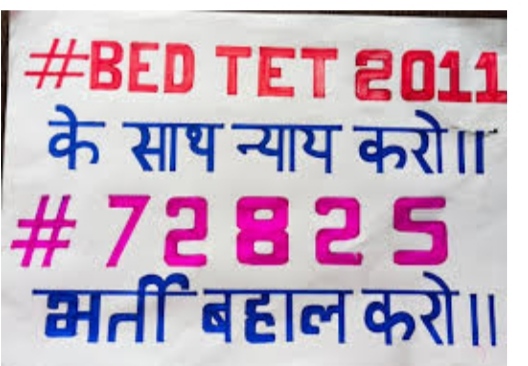 #BED TET 2011
के साथ न्याय करो॥
# 72825
भर्ती बहाल करो॥